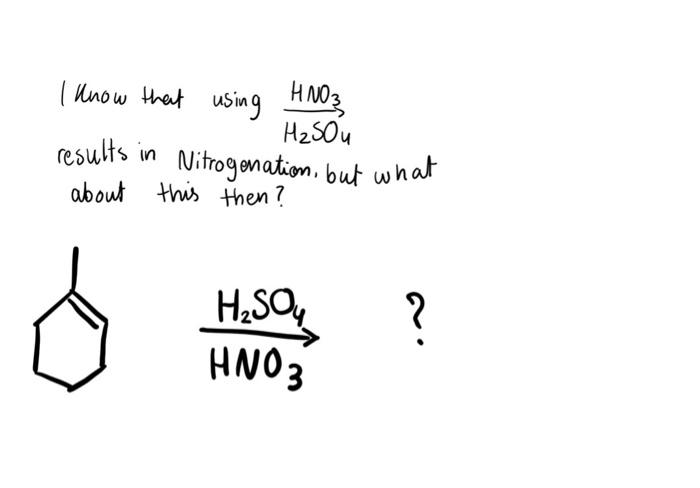 I know that using HNO3
H2SO4
results in Nitrogenation, but what
about this then?
H2SO4
HNO3
?